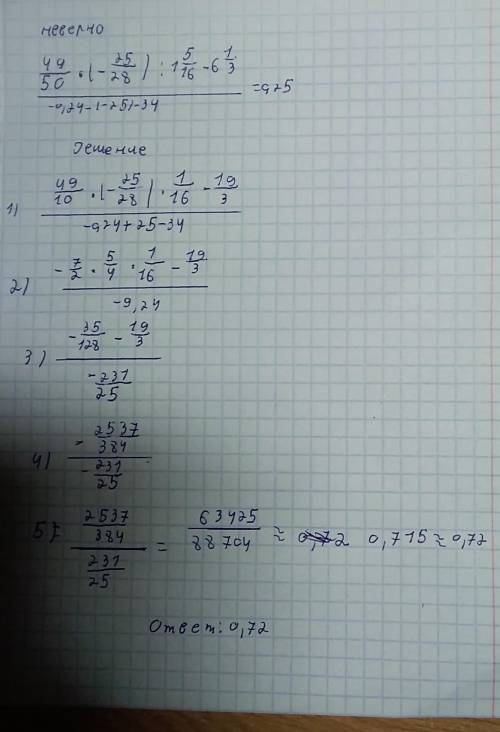 неверно
49/50 · (-25/28) : 1 5/16 - 6 1/3
-0,24-(-25)-34 = 0,25
Решение
1) 49/10 · (-25/28) · 1/16 - 19/3
-0,24+25-34
2) -7/2 · 5/4 · 1/16 - 19/3
-9,24
3) -35/128 - 19/3
-231/25
4) -2537/384
-231/25
5) 2537/384
231/25
= 63425/88704 ≈ 0,715 ≈ 0,72
Ответ: 0,72